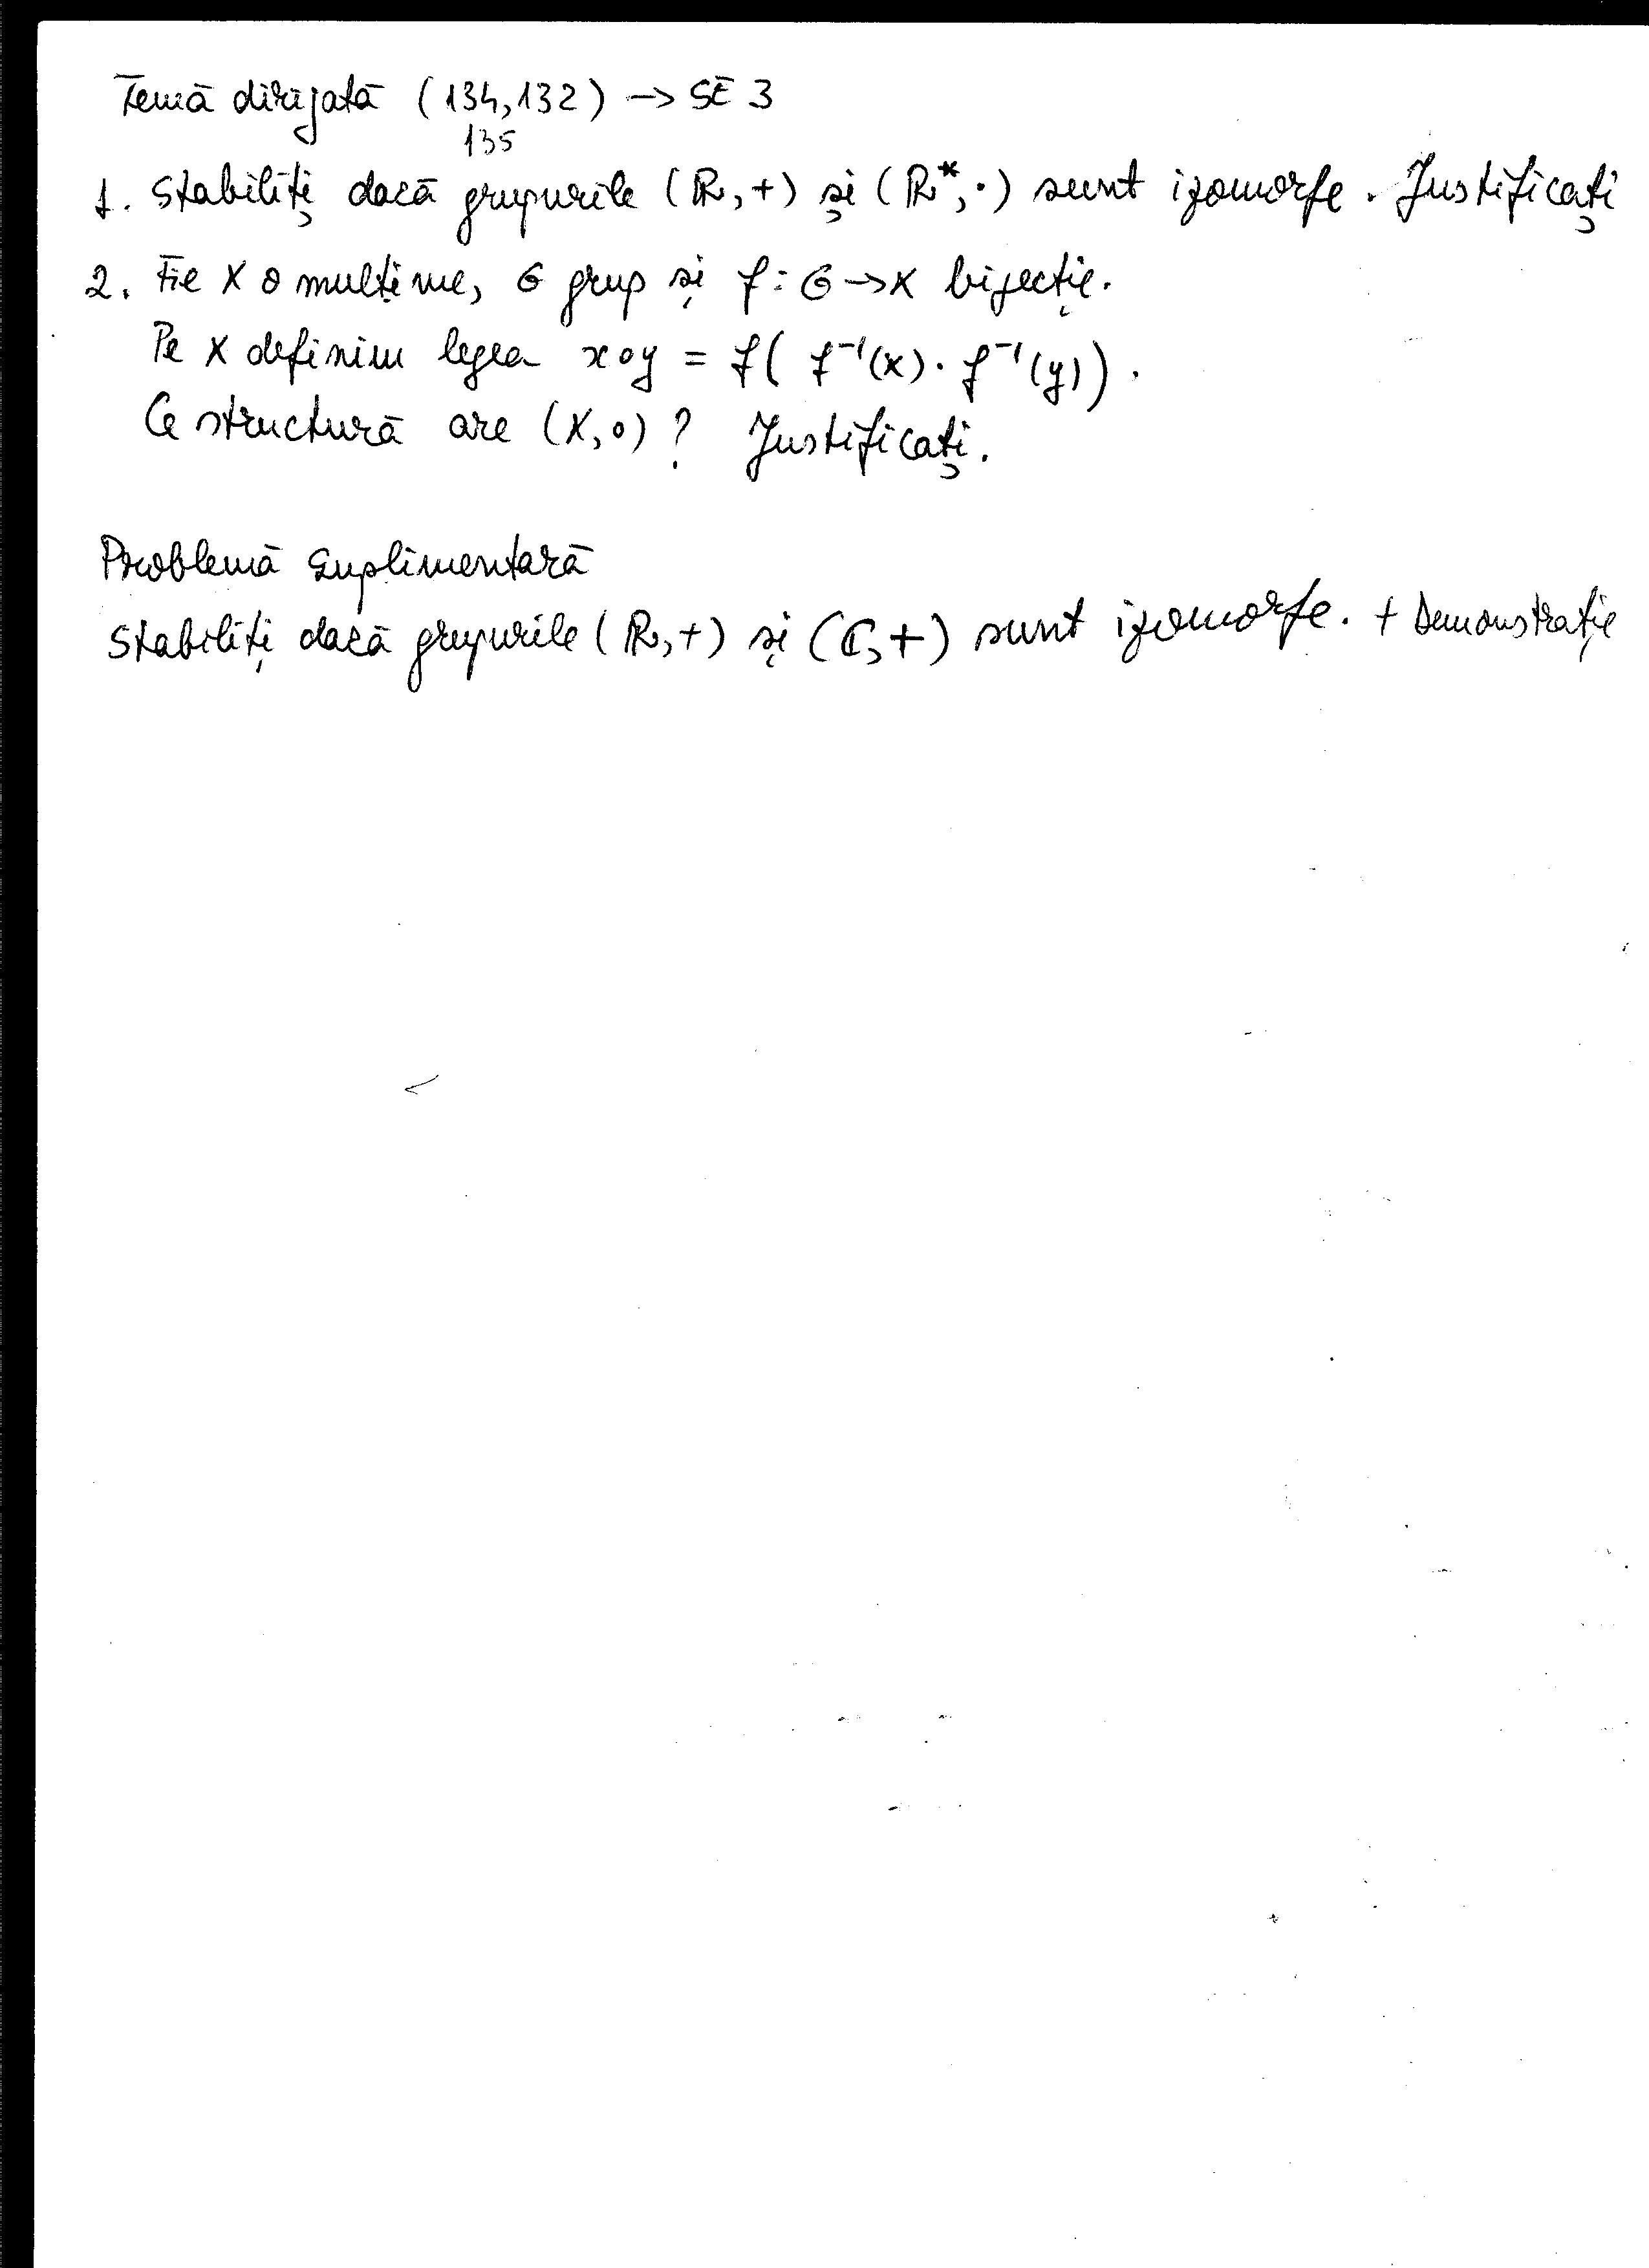 Temă dirijată (134, 132) → SE 3
135
1. Stabiliți dacă grupurile (ℝ, +) și (ℝ*, ·) sunt izomorfe. Justificați
2. Fie X o mulțime, G grup și f : G → X bijecție.
Pe X definim legea x∘y = f( f⁻¹(x) · f⁻¹(y)).
Ce structură are (X, ∘) ? Justificați.
Problemă suplimentară
Stabiliți dacă grupurile (ℝ, +) și (ℂ, +) sunt izomorfe. + Demonstrație